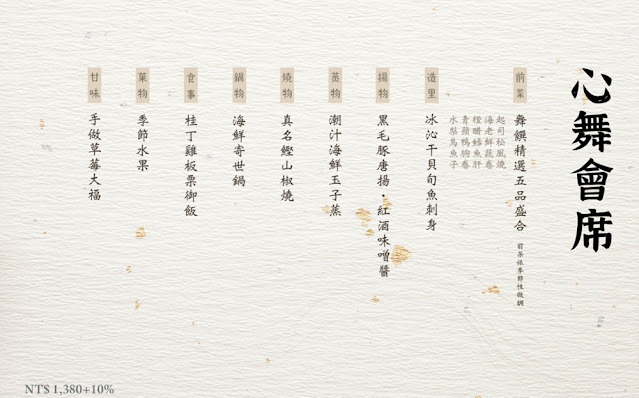 心舞會席
前菜
舞饌精選五品盛合 前菜依季節性微調
起司松風燒
海老鮮蔬卷
橙醋鱈魚肝
青蘋鴨胸卷
水梨烏魚子
造里
冰沁干貝旬魚刺身
揚物
黑毛豚唐揚・紅酒味噌醬
蒸物
潮汁海鮮玉子蒸
燒物
真名鰹山椒燒
鍋物
海鮮寄世鍋
食事
桂丁雞板栗御飯
菓物
季節水果
甘味
手做草莓大福
NT$ 1,380+10%